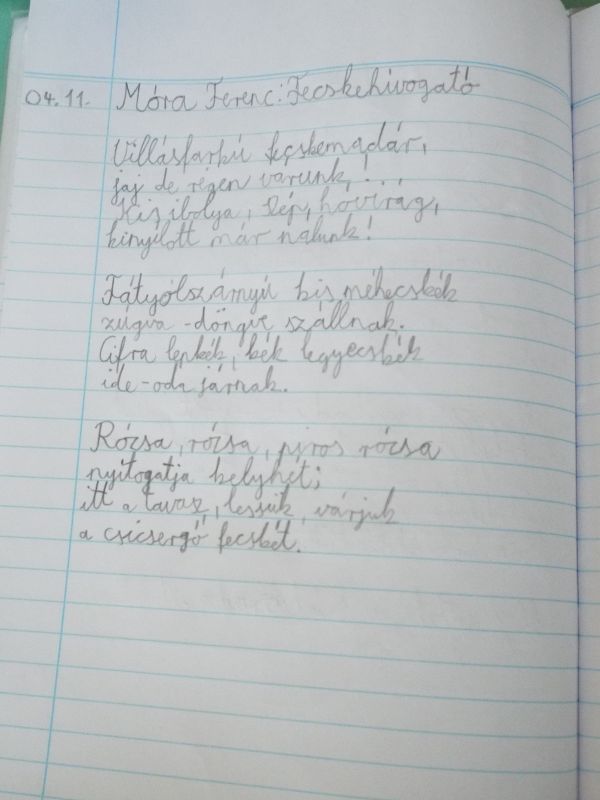 04.11. Móra Ferenc: Fecskehivogató
Villásfarkú fecskemadár,
jaj de régen várunk, !...
Kis ibolya, szép, hóvirág,
kinyílott már nálunk!
Fátyolszárnyú kis méhecskék
zúgva-döngve szállnak.
Cifra lepkék, kék legyecskék
ide-oda járnak.
Rózsa, rózsa, piros rózsa
nyitogatja kelyhét;
itt a tavasz, lessük, várjuk
a csicsergő fecskét.